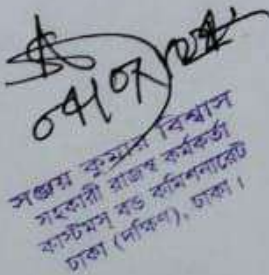 সঞ্জয় কুমার বিশ্বাস
সহকারী রাজস্ব কর্মকর্তা
কাস্টমস বন্ড কমিশনারেট
ঢাকা (দক্ষিণ), ঢাকা।